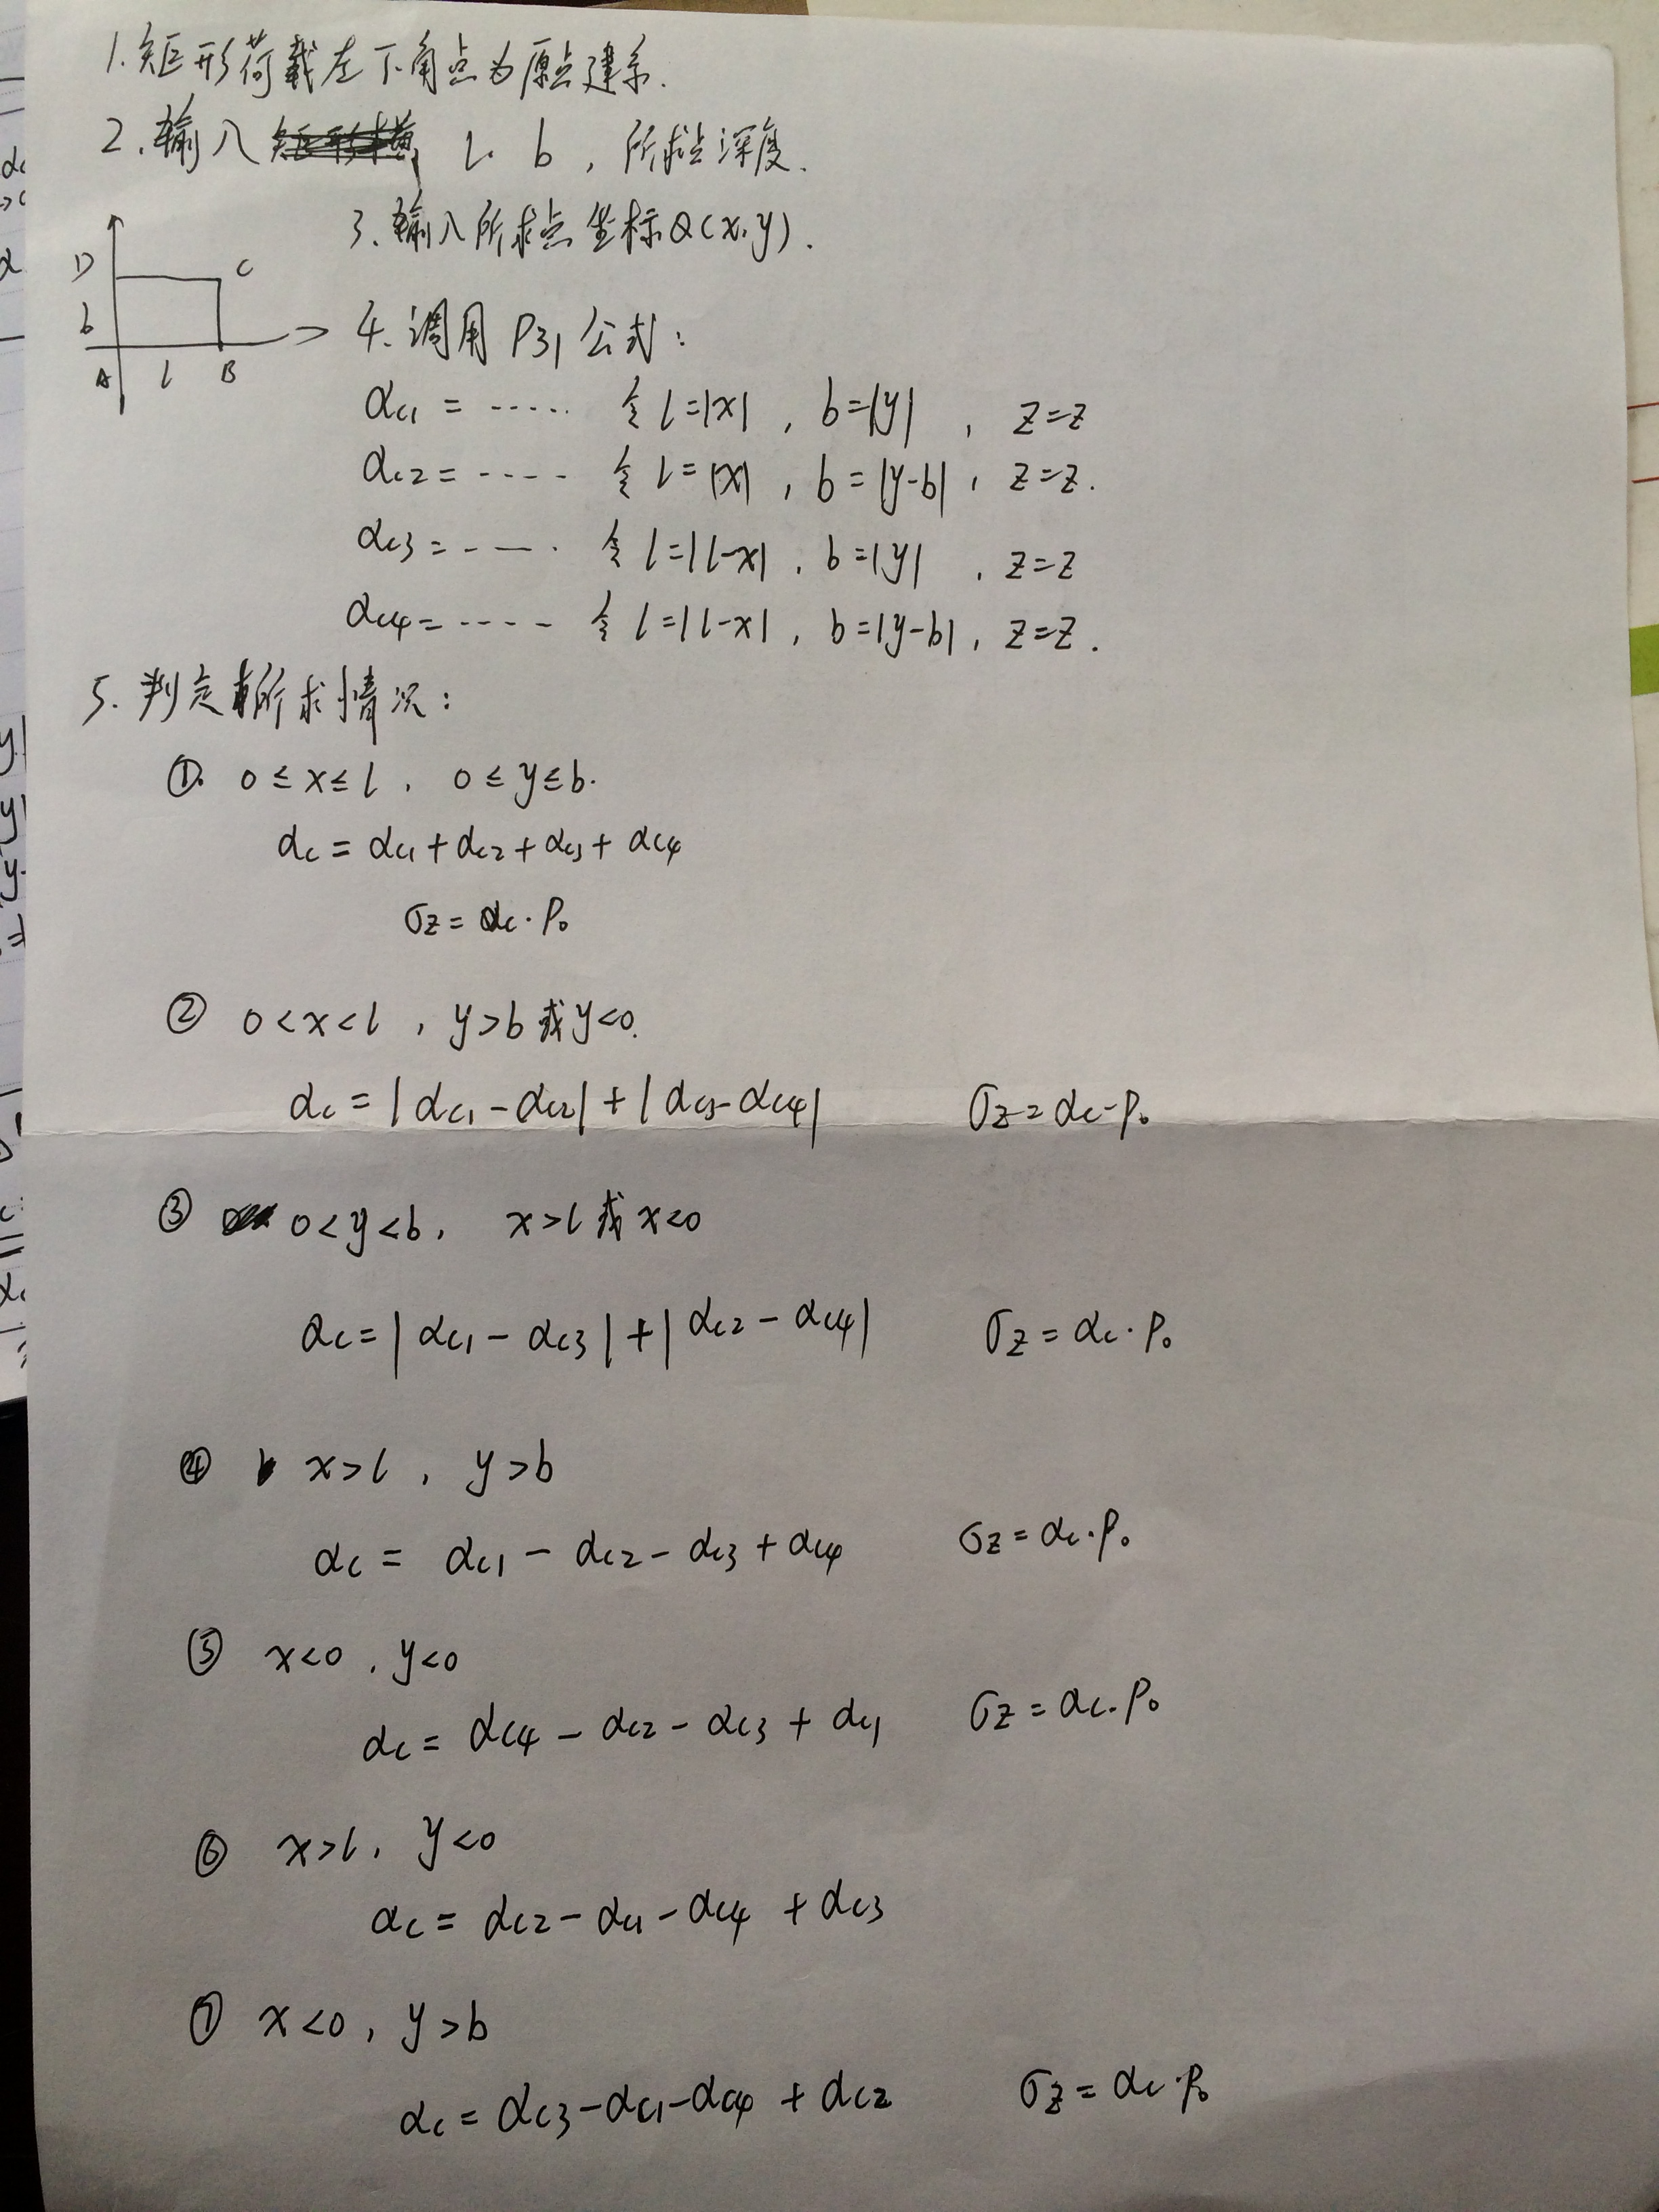 1.矩形荷载左下角点为原点建系.
2.输入 l. b , 所求点深度.
3.输入所求点坐标Q(x.y).
D C
b
A l B
4.调用 P31 公式:
αc1 = ····· 令 l=|x| , b=|y| , z=z
αc2 = ---- 令 l=|x| , b=|y-b| , z=z.
αc3 = - — · 令 l=|l-x| , b=|y| , z=z
αc4 = ---- 令 l=|l-x| , b=|y-b| , z=z.
5.判定所求情况:
①. 0≤x≤l , 0≤y≤b.
αc = αc1+αc2+αc3+αc4
σz = αc·P0
② 0<x<l , y>b 或 y<0.
αc = |αc1-αc2|+|αc3-αc4| σz=αc·P0
③ 0<y<b, x>l 或 x<0
αc=|αc1-αc3|+|αc2-αc4| σz=αc·P0
④ x>l , y>b
αc = αc1-αc2-αc3+αc4 σz=αc·P0
⑤ x<0 , y<0
αc = αc4-αc2-αc3+αc1 σz=αc·P0
⑥ x>l, y<0
αc = αc2-αc1-αc4+αc3
⑦ x<0 , y>b
αc = αc3-αc1-αc4+αc2 σz=αc·P0